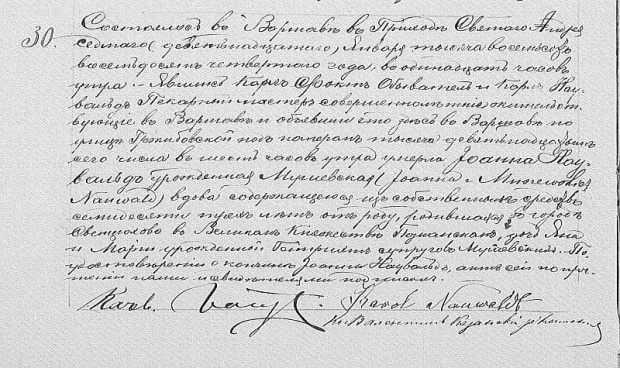 30. Состоялось въ Варшавѣ въ Приходѣ Святаго Андрея
седьмаго (девятнадцатаго) Января тысяча восемьсотъ
восемьдесятъ четвертаго года, въ одинадцать часовъ
утра. Явились Карлъ Обыватель и Карлъ Нау-
вальдъ Пекарный мастеръ совершеннолѣтніе жительст-
вующіе въ Варшавѣ и объявили что здѣсь въ Варшавѣ по
улицѣ Гржибовской подъ номеромъ тысяча
сего числа въ шесть часовъ утра умерла Іоанна Нау-
вальдъ урожденная Мушевская (Joanna z
Nauwald) вдова содержащаяся изъ собственныхъ средствъ
семидесяти трехъ лѣтъ отъ роду, родившаяся въ городѣ
въ Великомъ Княжествѣ Познанскомъ, дочь Яна
и Маріи урожденной супруговъ Мушевскихъ. По
удостовѣреніи о кончинѣ Іоанны Наувальдъ, актъ сей по про-
чтеніи нами и свидѣтелями подписанъ.
Karol Nauwald
Кс. Валентинъ